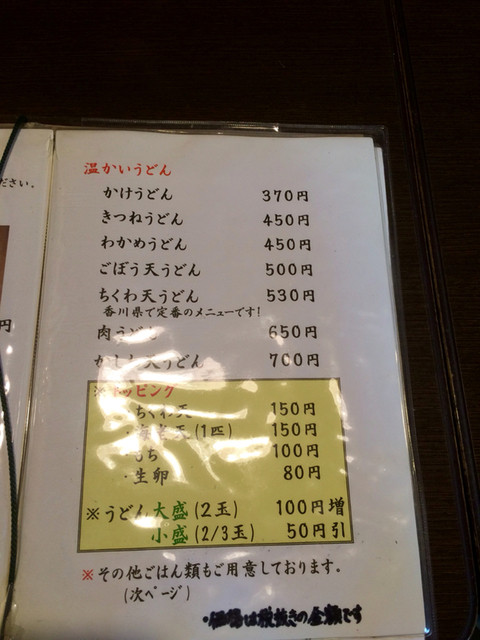 ださい。
円
温かいうどん
かけうどん 370円
きつねうどん 450円
わかめうどん 450円
ごぼう天うどん 500円
ちくわ天うどん 530円
香川県で定番のメニューです!
肉うどん 650円
かしわ天うどん 700円
※トッピング
・ちくわ天 150円
・海老天(1匹) 150円
・もち 100円
・生卵 80円
※うどん大盛(2玉) 100円増
小盛(2/3玉) 50円引
※その他ごはん類もご用意しております。
(次ページ)
・価格は税抜きの金額です